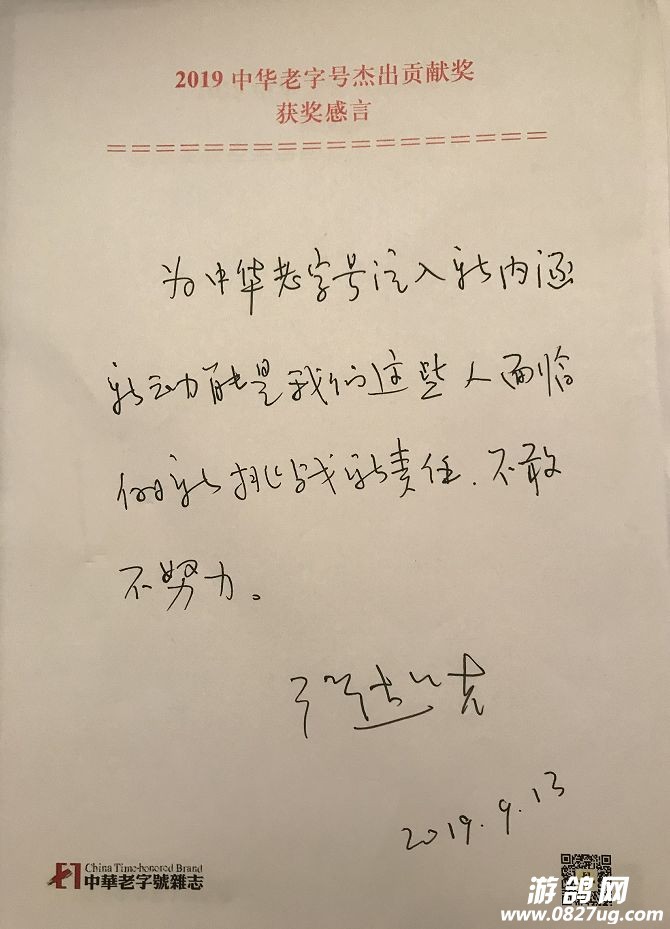 2019中华老字号杰出贡献奖
获奖感言
==================
为中华老字号注入新内涵
新动能是我们这些人面临
的新挑战新责任.不敢
不努力。
2019.9.13
China Time-honored Brand
中華老字號雜志
游鸽网
www.0827ug.com